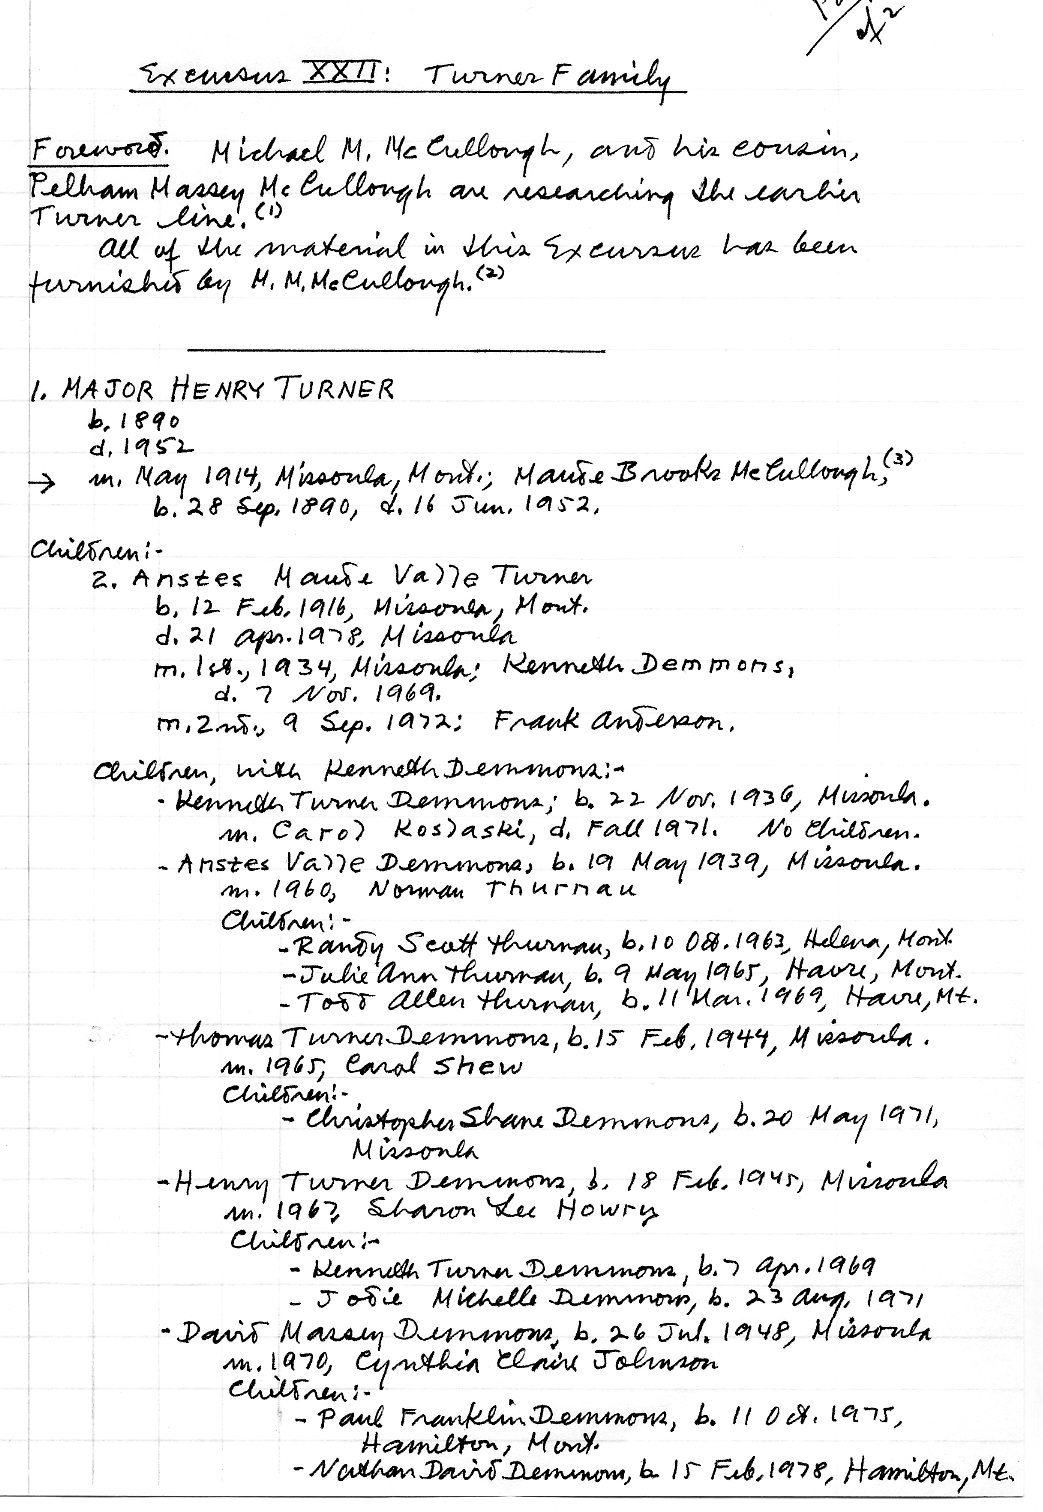 Excursus XXII: Turner Family
Foreword. Michael M. McCullough, and his cousin,
Pelham Massey McCullough are researching the earlier
Turner line.(1)
All of the material in this Excursus has been
furnished by M. M. McCullough.(2)
1. MAJOR HENRY TURNER
b. 1890
d. 1952
→ m. May 1914, Missoula, Mont.; Maude Brooks McCullough,(3)
b. 28 Sep. 1890, d. 16 Jun. 1952.
Children:-
2. Anstes Maude Valle Turner
b. 12 Feb. 1916, Missoula, Mont.
d. 21 Apr. 1978, Missoula
m. 1st., 1934, Missoula; Kenneth Demmons,
d. 7 Nov. 1969.
m. 2nd., 9 Sep. 1972: Frank Anderson.
Children, with Kenneth Demmons:-
- Kenneth Turner Demmons; b. 22 Nov. 1936, Missoula.
m. Carol Koslaski, d. Fall 1971. No Children.
- Anstes Valle Demmons, b. 19 May 1939, Missoula.
m. 1960, Norman Thurnau
Children:-
- Randy Scott Thurnau, b. 10 Oct. 1963, Helena, Mont.
- Julie Ann Thurnau, b. 9 May 1965, Havre, Mont.
- Todd Allen Thurnau, b. 11 Mar. 1969, Havre, Mt.
- Thomas Turner Demmons, b. 15 Feb. 1944, Missoula.
m. 1965, Carol Shew
Children:-
- Christopher Shane Demmons, b. 20 May 1971,
Missoula
- Henry Turner Demmons, b. 18 Feb. 1945, Missoula
m. Sharon Lee Howry
Children:-
- Kenneth Turner Demmons, b. 7 Apr. 1969
- Jodie Michelle Demmons, b. 23 Aug. 1971
- David Massey Demmons, b. 26 Jul. 1948, Missoula
m. 1970, Cynthia Claire Johnson
Children:-
- Paul Franklin Demmons, b. 11 Oct. 1975,
Hamilton, Mont.
- Nathan David Demmons, b. 15 Feb. 1978, Hamilton, Mt.